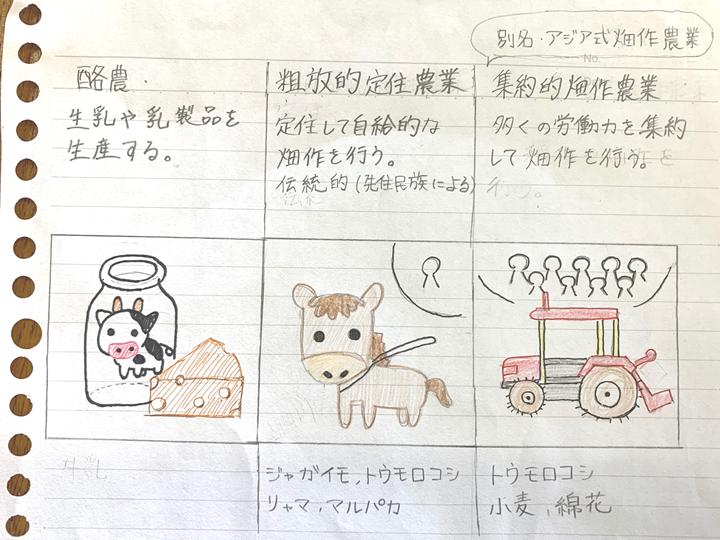 別名・アジア式畑作農業
No.
酪農・
生乳や乳製品を
生産する。
粗放的定住農業
定住して自給的な
畑作を行う。
伝統的(先住民族による)
集約的畑作農業
多くの労働力を集約
して畑作を行う。
ジャガイモ,トウモロコシ
リャマ,マルパカ
トウモロコシ
小麦,綿花